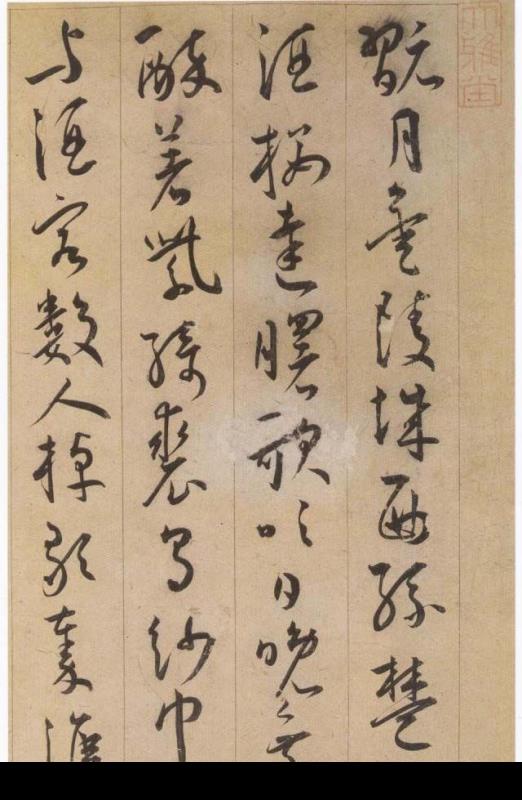 大雅堂
翫月金陵城西孫楚
酒樓達曙歌吹日晚乘
醉著紫綺裘烏紗巾
与酒客數人棹歌秦淮